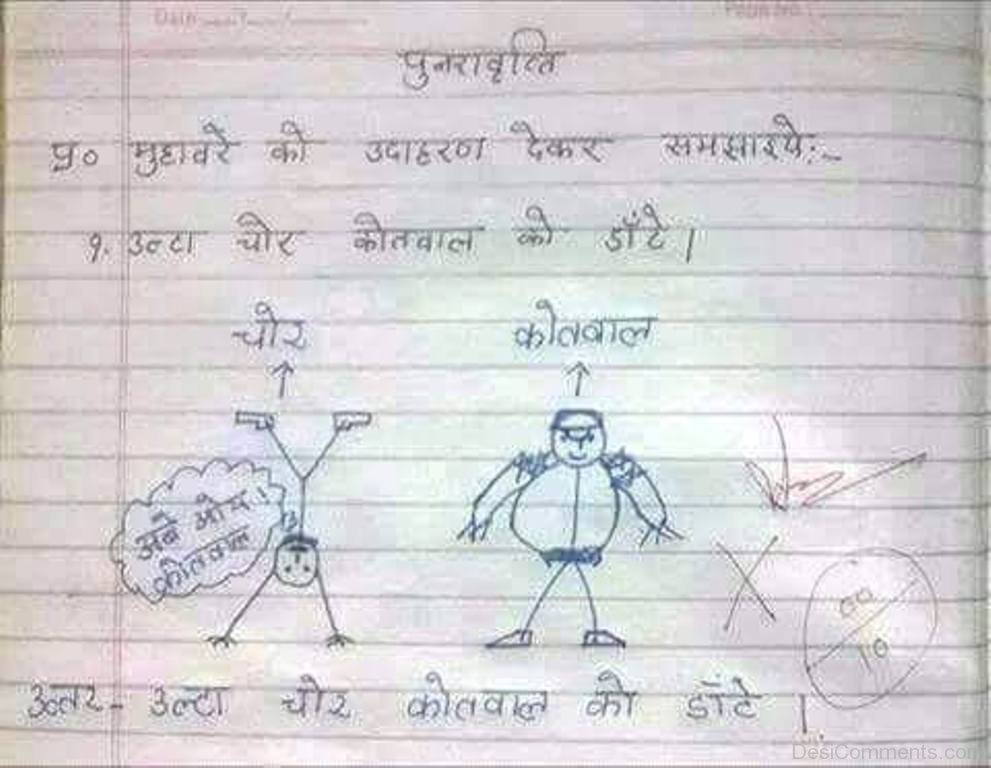 Date
Page No.
पुनरावृत्ति
प्र० मुहावरे को उदाहरण देकर समझाइये:-
१. उल्टा चोर कोतवाल को डाँटे।
चोर
कोतवाल
अबे ओय!
कोतवाल
00
10
उत्तर- उल्टा चोर कोतवाल को डाँटे।
DesiComments.com